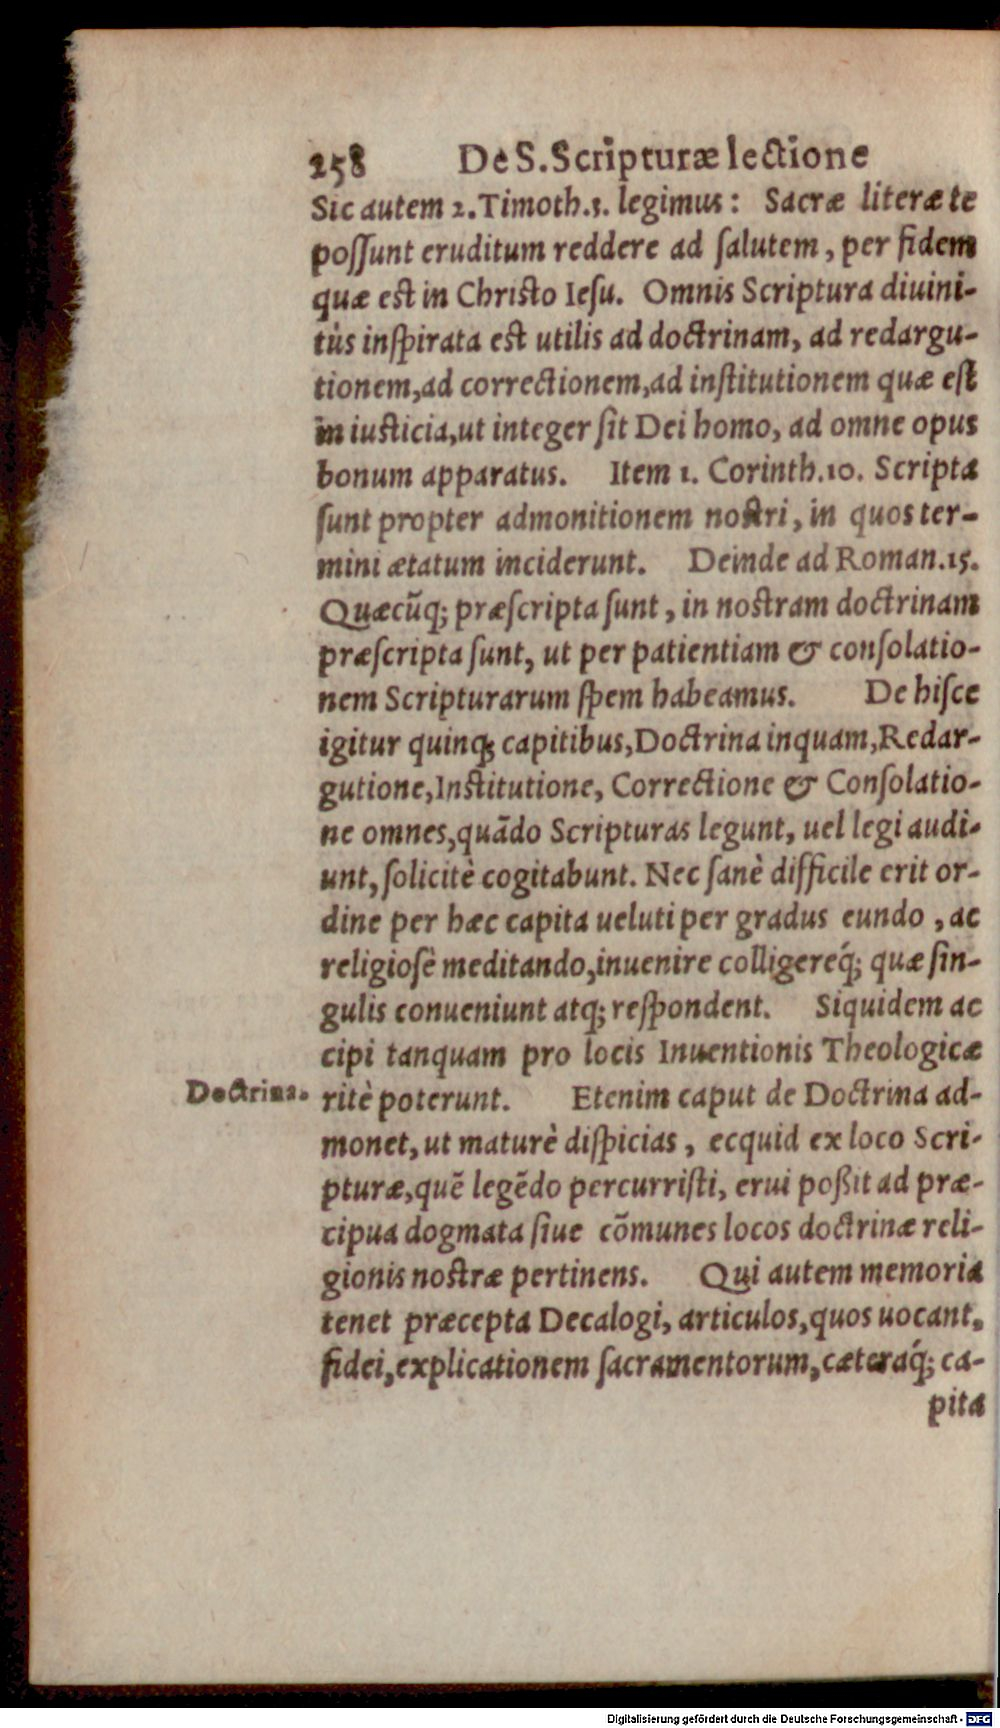 258 De S. Scripturæ lectione
Sic autem 2. Timoth. 3. legimus: Sacræ literæ te
poſſunt eruditum reddere ad ſalutem, per fidem
quæ est in Christo Ieſu. Omnis Scriptura diuini-
tùs inſpirata est utilis ad doctrinam, ad redargu-
tionem, ad correctionem, ad inſtitutionem quæ eſt
in iusticia, ut integer ſit Dei homo, ad omne opus
bonum apparatus. Item 1. Corinth. 10. Scripta
ſunt propter admonitionem nostri, in quos ter-
mini ætatum inciderunt. Deinde ad Roman. 15.
Quæcũq; præſcripta ſunt, in nostram doctrinam
præſcripta ſunt, ut per patientiam & conſolatio-
nem Scripturarum ſpem habeamus. De hiſce
igitur quinq; capitibus, Doctrina inquam, Redar-
gutione, Institutione, Correctione & Conſolatio-
ne omnes, quãdo Scripturas legunt, uel legi audi-
unt, ſolicitè cogitabunt. Nec ſanè difficile erit or-
dine per hæc capita ueluti per gradus eundo, ac
religioſè meditando, inuenire colligereq́; quæ ſin-
gulis conueniunt atq; reſpondent. Siquidem ac
cipi tanquam pro locis Inuentionis Theologicæ
Doctrina. ritè poterunt. Etenim caput de Doctrina ad-
monet, ut maturè diſpicias, ecquid ex loco Scri-
pturæ, quẽ legẽdo percurriſti, erui poßit ad præ-
cipua dogmata ſiue cõmunes locos doctrinæ reli-
gionis nostræ pertinens. Qui autem memoria
tenet præcepta Decalogi, articulos, quos uocant,
fidei, explicationem ſacramentorum, cæteraq́; ca-
pita
Digitalisierung gefördert durch die Deutsche Forschungsgemeinschaft - DFG